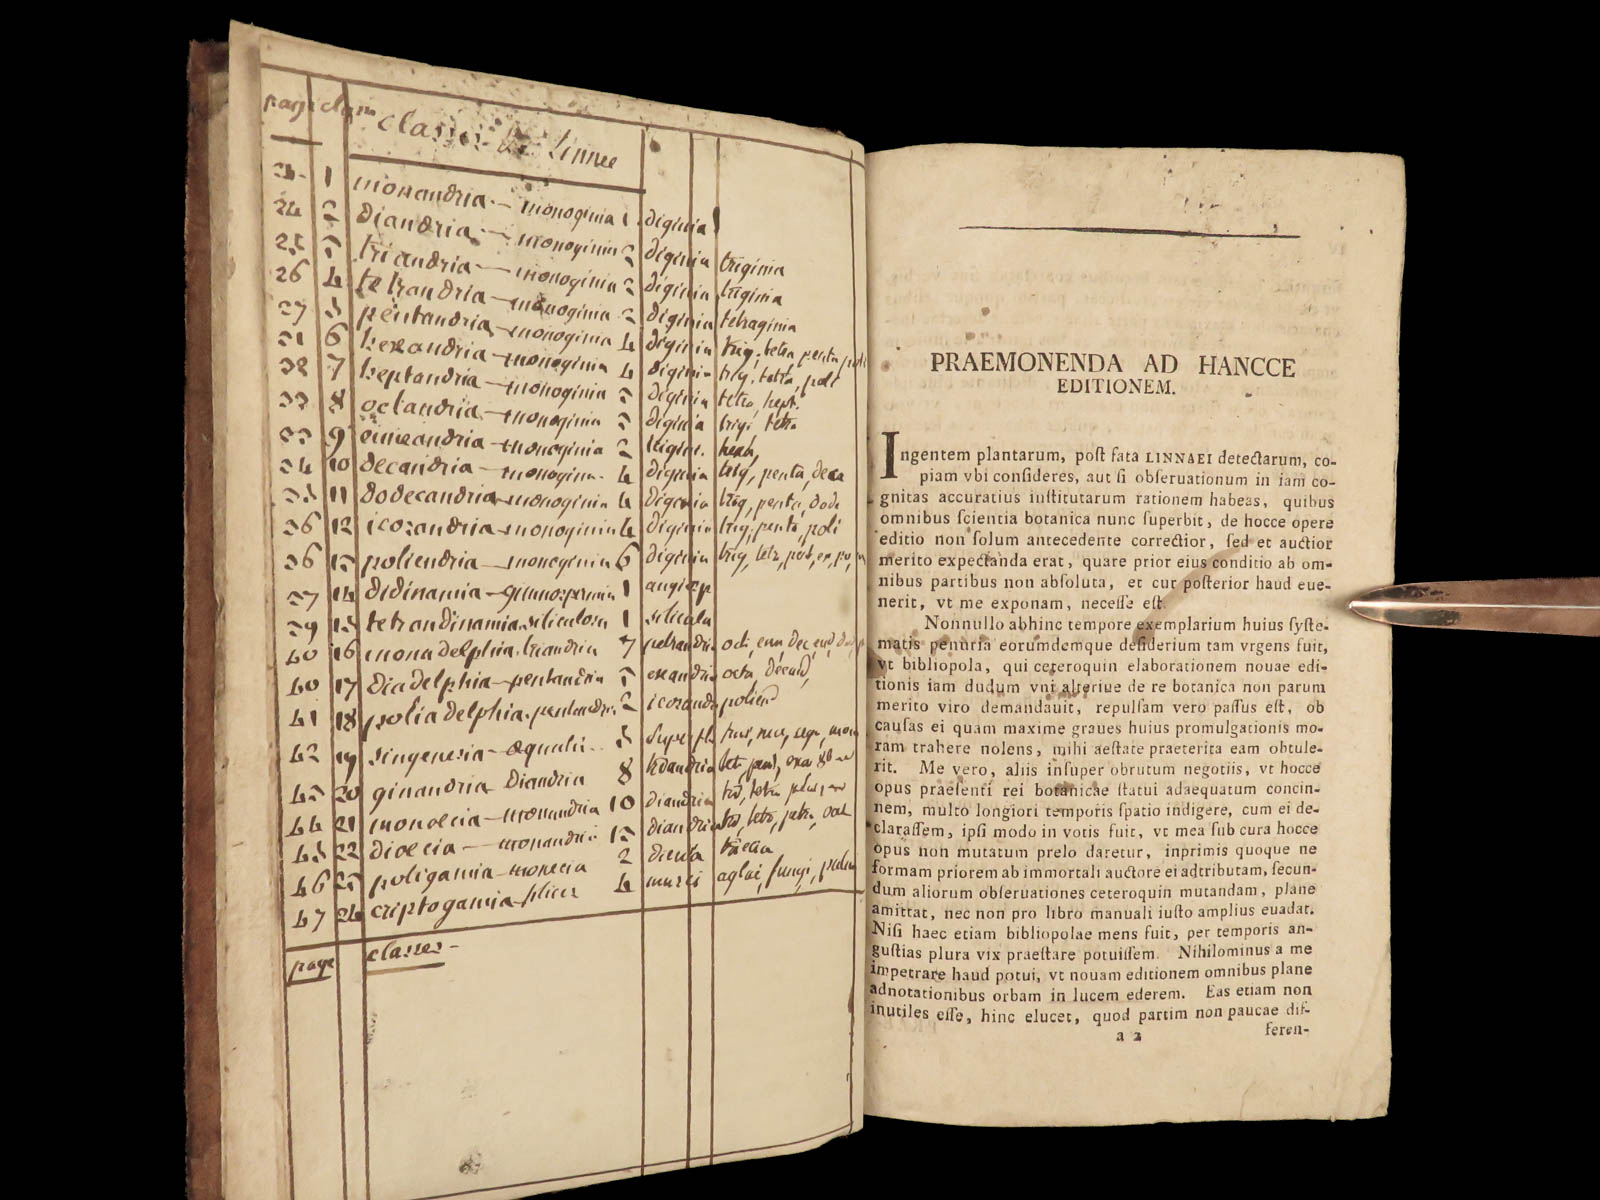 page class classes de Linnee
1 monandria - monoginia 1 diginia
24 2 diandria - monoginia 2 diginia triginia
25 3 triandria - monoginia 2 diginia triginia
26 4 tetrandria - monoginia 2 diginia tetraginia
27 5 pentandria - monoginia 4 diginia trig, tetra penta poli
31 6 hexandria - monoginia 4 diginia trig, tetra, poli
32 7 heptandria - monoginia 3 diginia tetra, hept.
33 8 octandria - monoginia 3 diginia trigi tetra
33 9 enneandria - monoginia 2 trigini. hexa,
34 10 decandria - monoginia. 4 diginia trig, penta, deca
35 11 dodecandria - monoginia 4 diginia trig, penta, dode
36 12 icozandria - monoginia 4 diginia trig, penta, poli
36 13 poliendria - monoginia 6 diginia
37 14 didinamia - gimnospermia 1 angiosp
39 15 tetrandinamia. siliculosa 1 siliculu
40 16 monadelphia. triandria 7
40 17 diadelphia - pentandria 3 exandria octa, decand,
41 18 poliadelphia. pentandri. 2 icozandr poliend
42 19 singenesia - equali.. 5 superfl.
43 20 ginandria Diandria 8
44 21 monoecia - monandria 10 diandria
45 22 dioecia - monandria 13 diandria
46 23 poligamia - monecia 2 dieica triecia
47 24 criptogamia - filices 4 musci aglae, fungi, palm
page classes -
PRAEMONENDA AD HANCCE
EDITIONEM.
Ingentem plantarum, poſt fata LINNAEI detectarum, co-
piam vbi conſideres, aut ſi obſeruationum in iam co-
gnitas accuratius inſtitutarum rationem habeas, quibus
omnibus ſcientia botanica nunc ſuperbit, de hocce opere
editio non ſolum antecedente correctior, ſed et auctior
merito expectanda erat, quare prior eius conditio ab om-
nibus partibus non abſoluta, et cur poſterior haud eue-
nerit, vt me exponam, neceſſe eſt.
Nonnullo abhinc tempore exemplarium huius ſyſte-
matis penuria eorumdemque deſiderium tam vrgens fuit,
vt bibliopola, qui ceteroquin elaborationem nouae edi-
tionis iam dudum vni alteriue de re botanica non parum
merito viro demandauit, repulſam vero paſſus eſt, ob
cauſas ei quam maxime graues huius promulgationis mo-
ram trahere nolens, mihi aeſtate praeterita eam obtule-
rit. Me vero, aliis inſuper obrutum negotiis, vt hocce
opus praeſenti rei botanicae ſtatui adaequatum concin-
nem, multo longiori temporis ſpatio indigere, cum ei de-
claraſſem, ipſi modo in votis fuit, vt mea ſub cura hocce
opus non mutatum prelo daretur, inprimis quoque ne
formam priorem ab immortali auctore ei adtributam, ſecun-
dum aliorum obſeruationes ceteroquin mutandam, plane
amittat, nec non pro libro manuali iuſto amplius euadat.
Niſi haec etiam bibliopolae mens fuit, per temporis an-
guſtias plura vix praeſtare potuiſſem. Nihilominus a me
impetrare haud potui, vt nouam editionem omnibus plane
adnotationibus orbam in lucem ederem. Eas etiam non
inutiles eſſe, hinc elucet, quod partim non paucae dif-
a 2 feren-